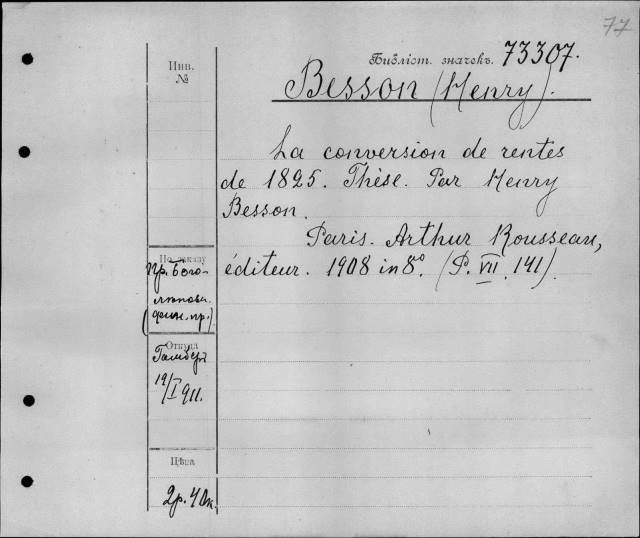 77
Библіот. значекъ. 73307.
Инв.
№
Besson (Henry).
La conversion de rentes
de 1825. Thèse. Par Henry
Besson.
Paris. Arthur Rousseau,
éditeur. 1908 in 8º. (P. VII. 141).
По заказу
Пр. Бого-
лѣпова.
(Фин. пр.)
Откуда
Гамберъ
19/I 911.
Цѣна
2р. 40к.